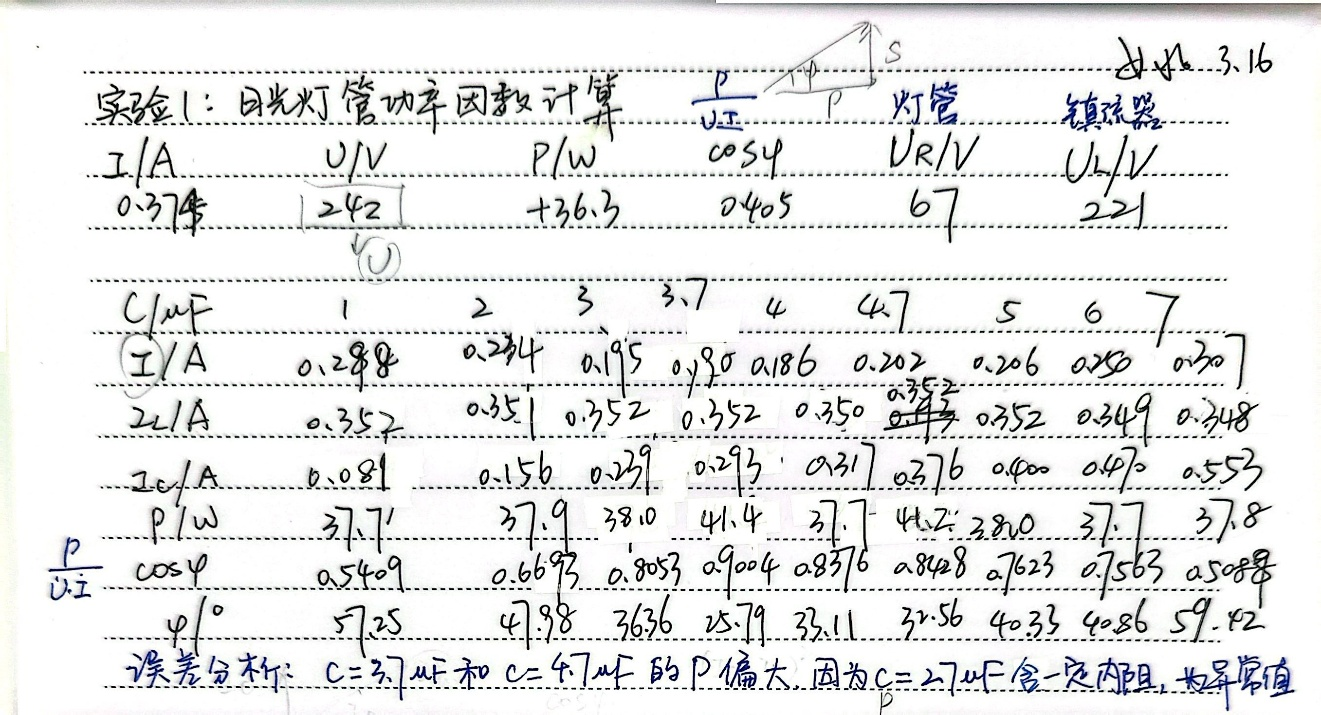 3.16
S
φ
P
实验1：日光灯管功率因数计算 P/U.I 灯管 镇流器
I/A U/V P/W cosφ UR/V UL/V
242 +36.3 0.405 67 221
U
C/μF 1 2 3 3.7 4 4.7 5 6 7
I/A 0.234 0.195 0.190 0.186 0.202 0.206 0.250 0.307
IL/A 0.352 0.351 0.352 0.352 0.350 0.352 0.352 0.349 0.348
Ic/A 0.081 0.156 0.239 0.293 0.317 0.376 0.400 0.470 0.553
P/W 37.7 37.9 38.0 41.4 37.7 41.2 38.0 37.7 37.8
P/U.I cosφ 0.5409 0.6693 0.8053 0.9004 0.8376 0.8428 0.7623 0.7563
φ/° 57.25 47.98 36.36 25.79 33.11 32.56 40.33 40.86 59.42
误差分析：C=3.7μF和C=4.7μF的P偏大，因为C=2.7μF含一定内阻，为异常值
P